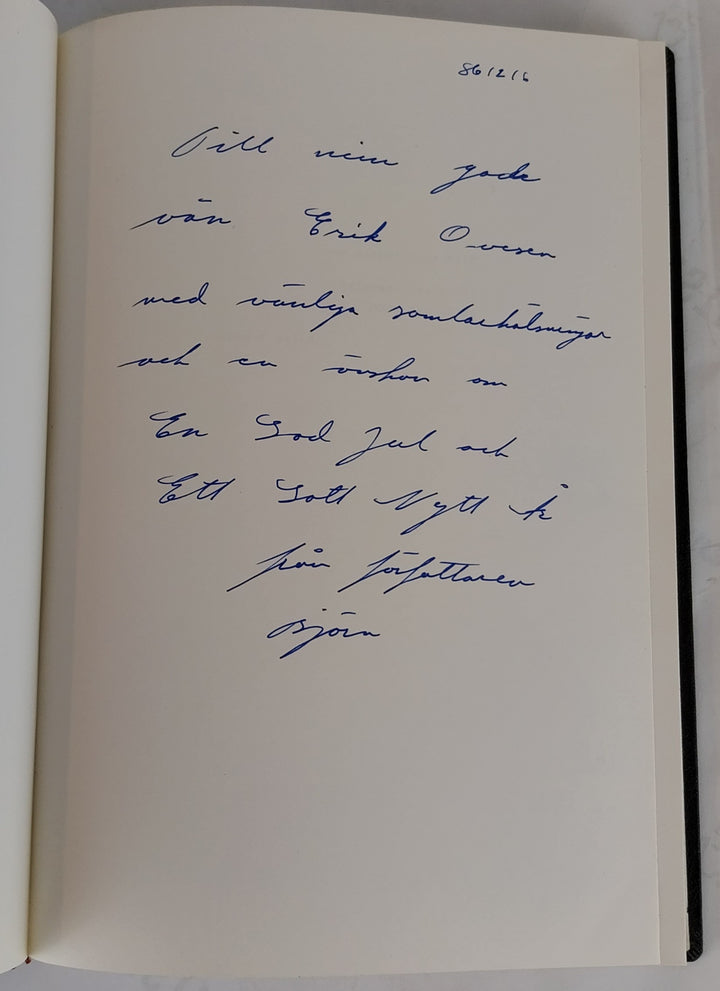 86/2/6
Till min gode
vän Erik Ovesen
med vänliga
och en önskan om
En God Jul och
Ett Gott Nytt År
från författaren
Björn